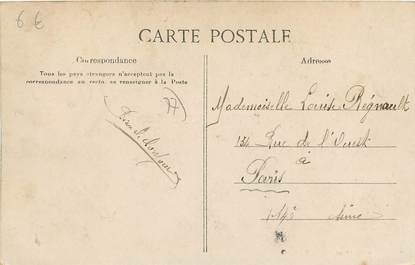 6 €
CARTE POSTALE
Correspondance
Tous les pays étrangers n'acceptent pas la
correspondance au recto, se renseigner à la Poste
77
Adresse
Mademoiselle Louise Régnault
134 Rue de l'Ouest
à
Paris
14e